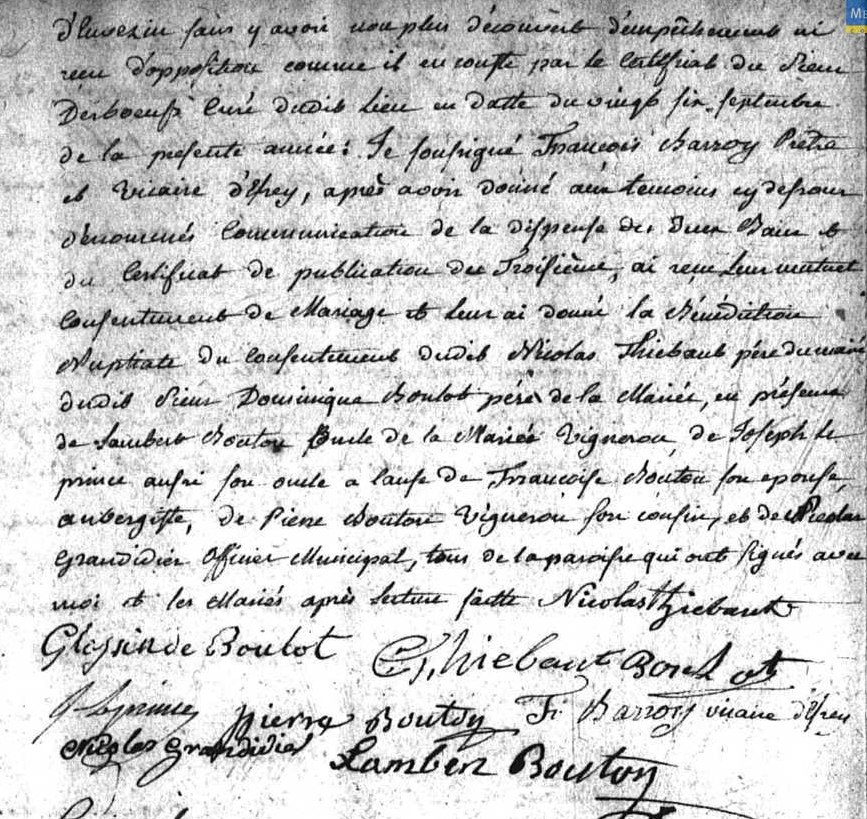 d'Euvezin sans y avoir non plus découvert d'empêchement ni
reçu d'opposition comme il en conste par le Certificat du Sieur
Desboeufs Curé dudit Lieu en datte du vingt six septembre
de la presente année: Je soussigné François Barroy Prêtre
et Vicaire d'Essey, après avoir donné aux temoins cy dessous
dénommés Communication de la dispense des deux Bans et
du Certificat de publication du Troisième, ai reçu leur mutuel
Consentement de Mariage et leur ai donné la Bénédiction
Nuptiale du consentement dudit Nicolas Thiebaut pére du marié
dudit Sieur Dominique Boulot pére de la Mariée, en présence
de Lambert Bouton Oncle de la Mariée Vigneron, de Joseph le
prince aussi son oncle a cause de Françoise Bouton son epouse,
aubergiste, de Pierre Bouton Vigneron son cousin, et de Nicolas
Grandidier Officier Municipal, tous de la paroisse qui ont signés avec
moi et les Mariés après lecture faitte Nicolas Thiebaut
de Boulot C Thiebaut Boulot
J leprince pierre Bouton Fr Barroy vicaire d'Essey
Nicolas Grandidier Lamber Bouton